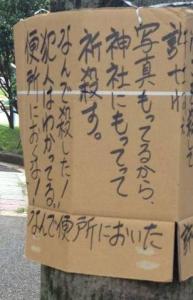 許せ
写真もってるから、
神社にもってって
祈殺す。
なんで殺した!
犯人はわかってる。
便所におくな!
なんで便所においた